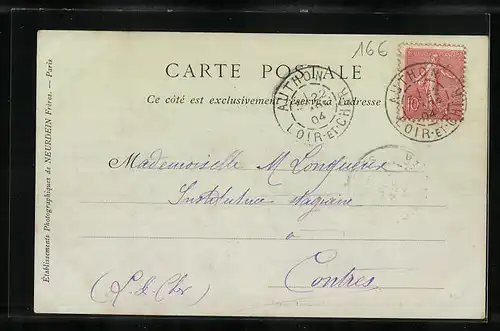 166
CARTE POSTALE
Ce côté est exclusivement réservé à l'adresse
AUTHON
22
04
LOIR-ET-CHER
AUTHON
10
04
LOIR-ET-CHER
Établissements Photographiques de NEURDEIN Frères. - Paris
Mademoiselle M Longueres
Institutrice stagiaire
à
Contres
(L.-&-Cher)